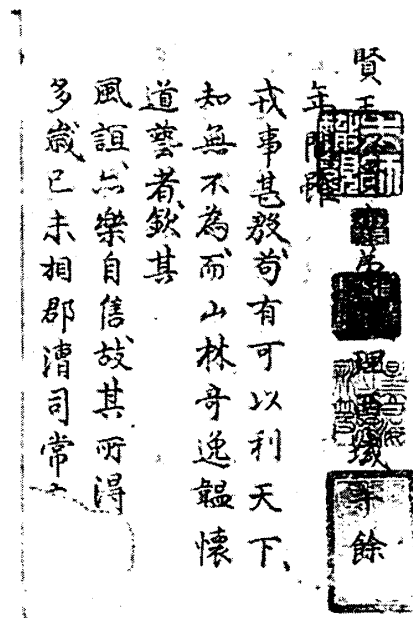 賢王
理西域年餘
年間雖
戎事甚殷苟有可以利天下
知無不為而山林奇逸韞懷
道藝者欽其
風誼亦樂自售故其所得
多歲己未相郡漕司常